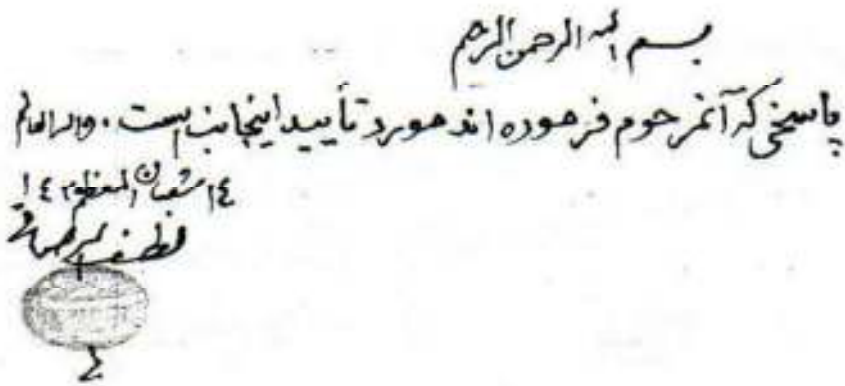 بسم الله الرحمن الرحیم
پاسخی که آنمرحوم فرموده اند مورد تأیید اینجانب است. والله العالم
١٤ شعبان المعظم ١٤
لطف الله صافی